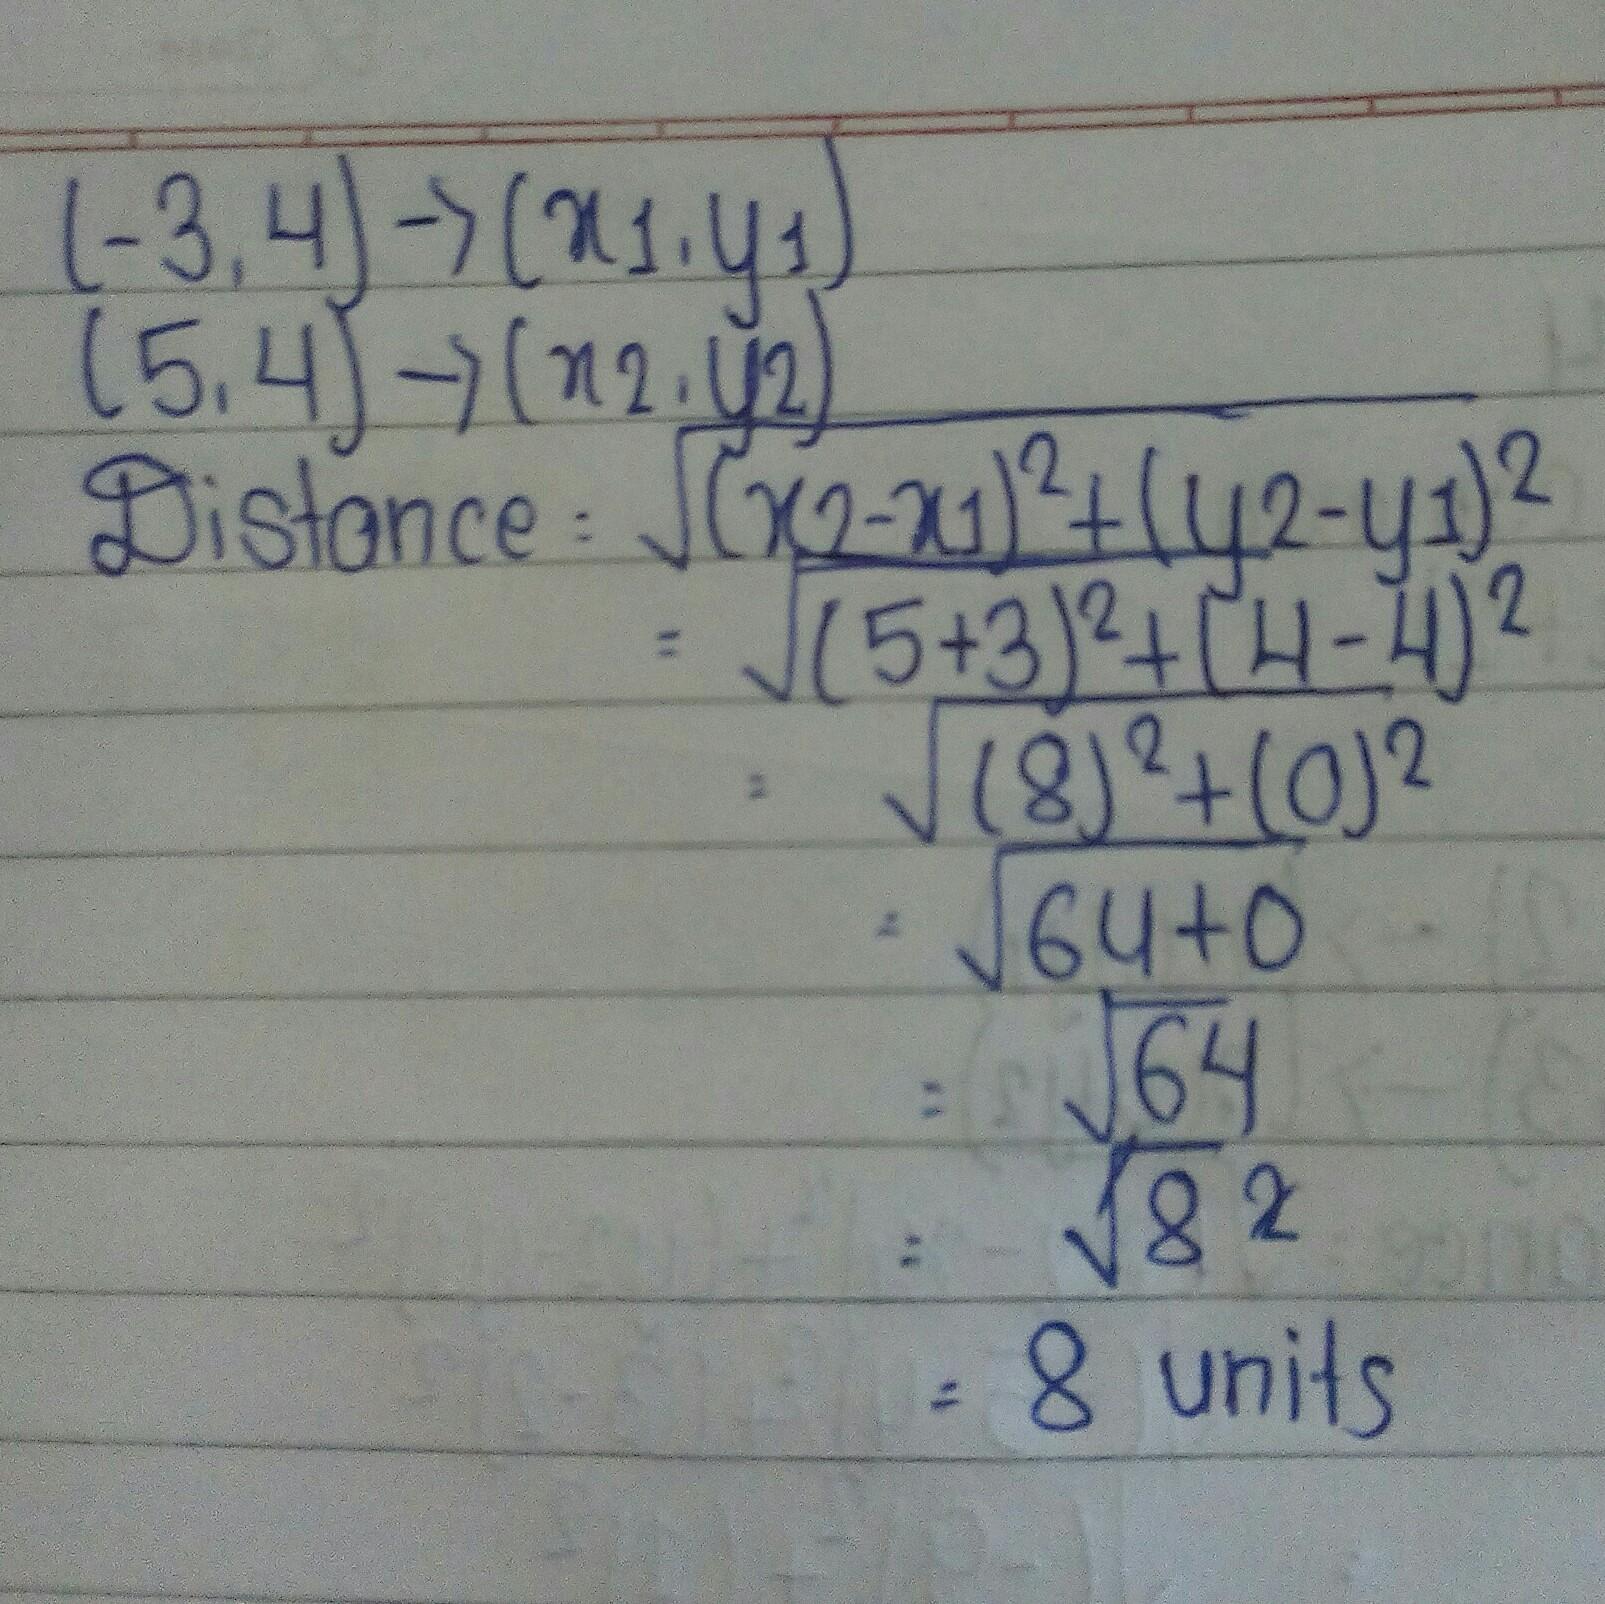 (-3,4) → (x1,y1)
(5,4) → (x2,y2)
Distance = √(x2-x1)²+(y2-y1)²
= √(5+3)²+(4-4)²
= √(8)²+(0)²
= √64+0
= √64
= √8²
= 8 units